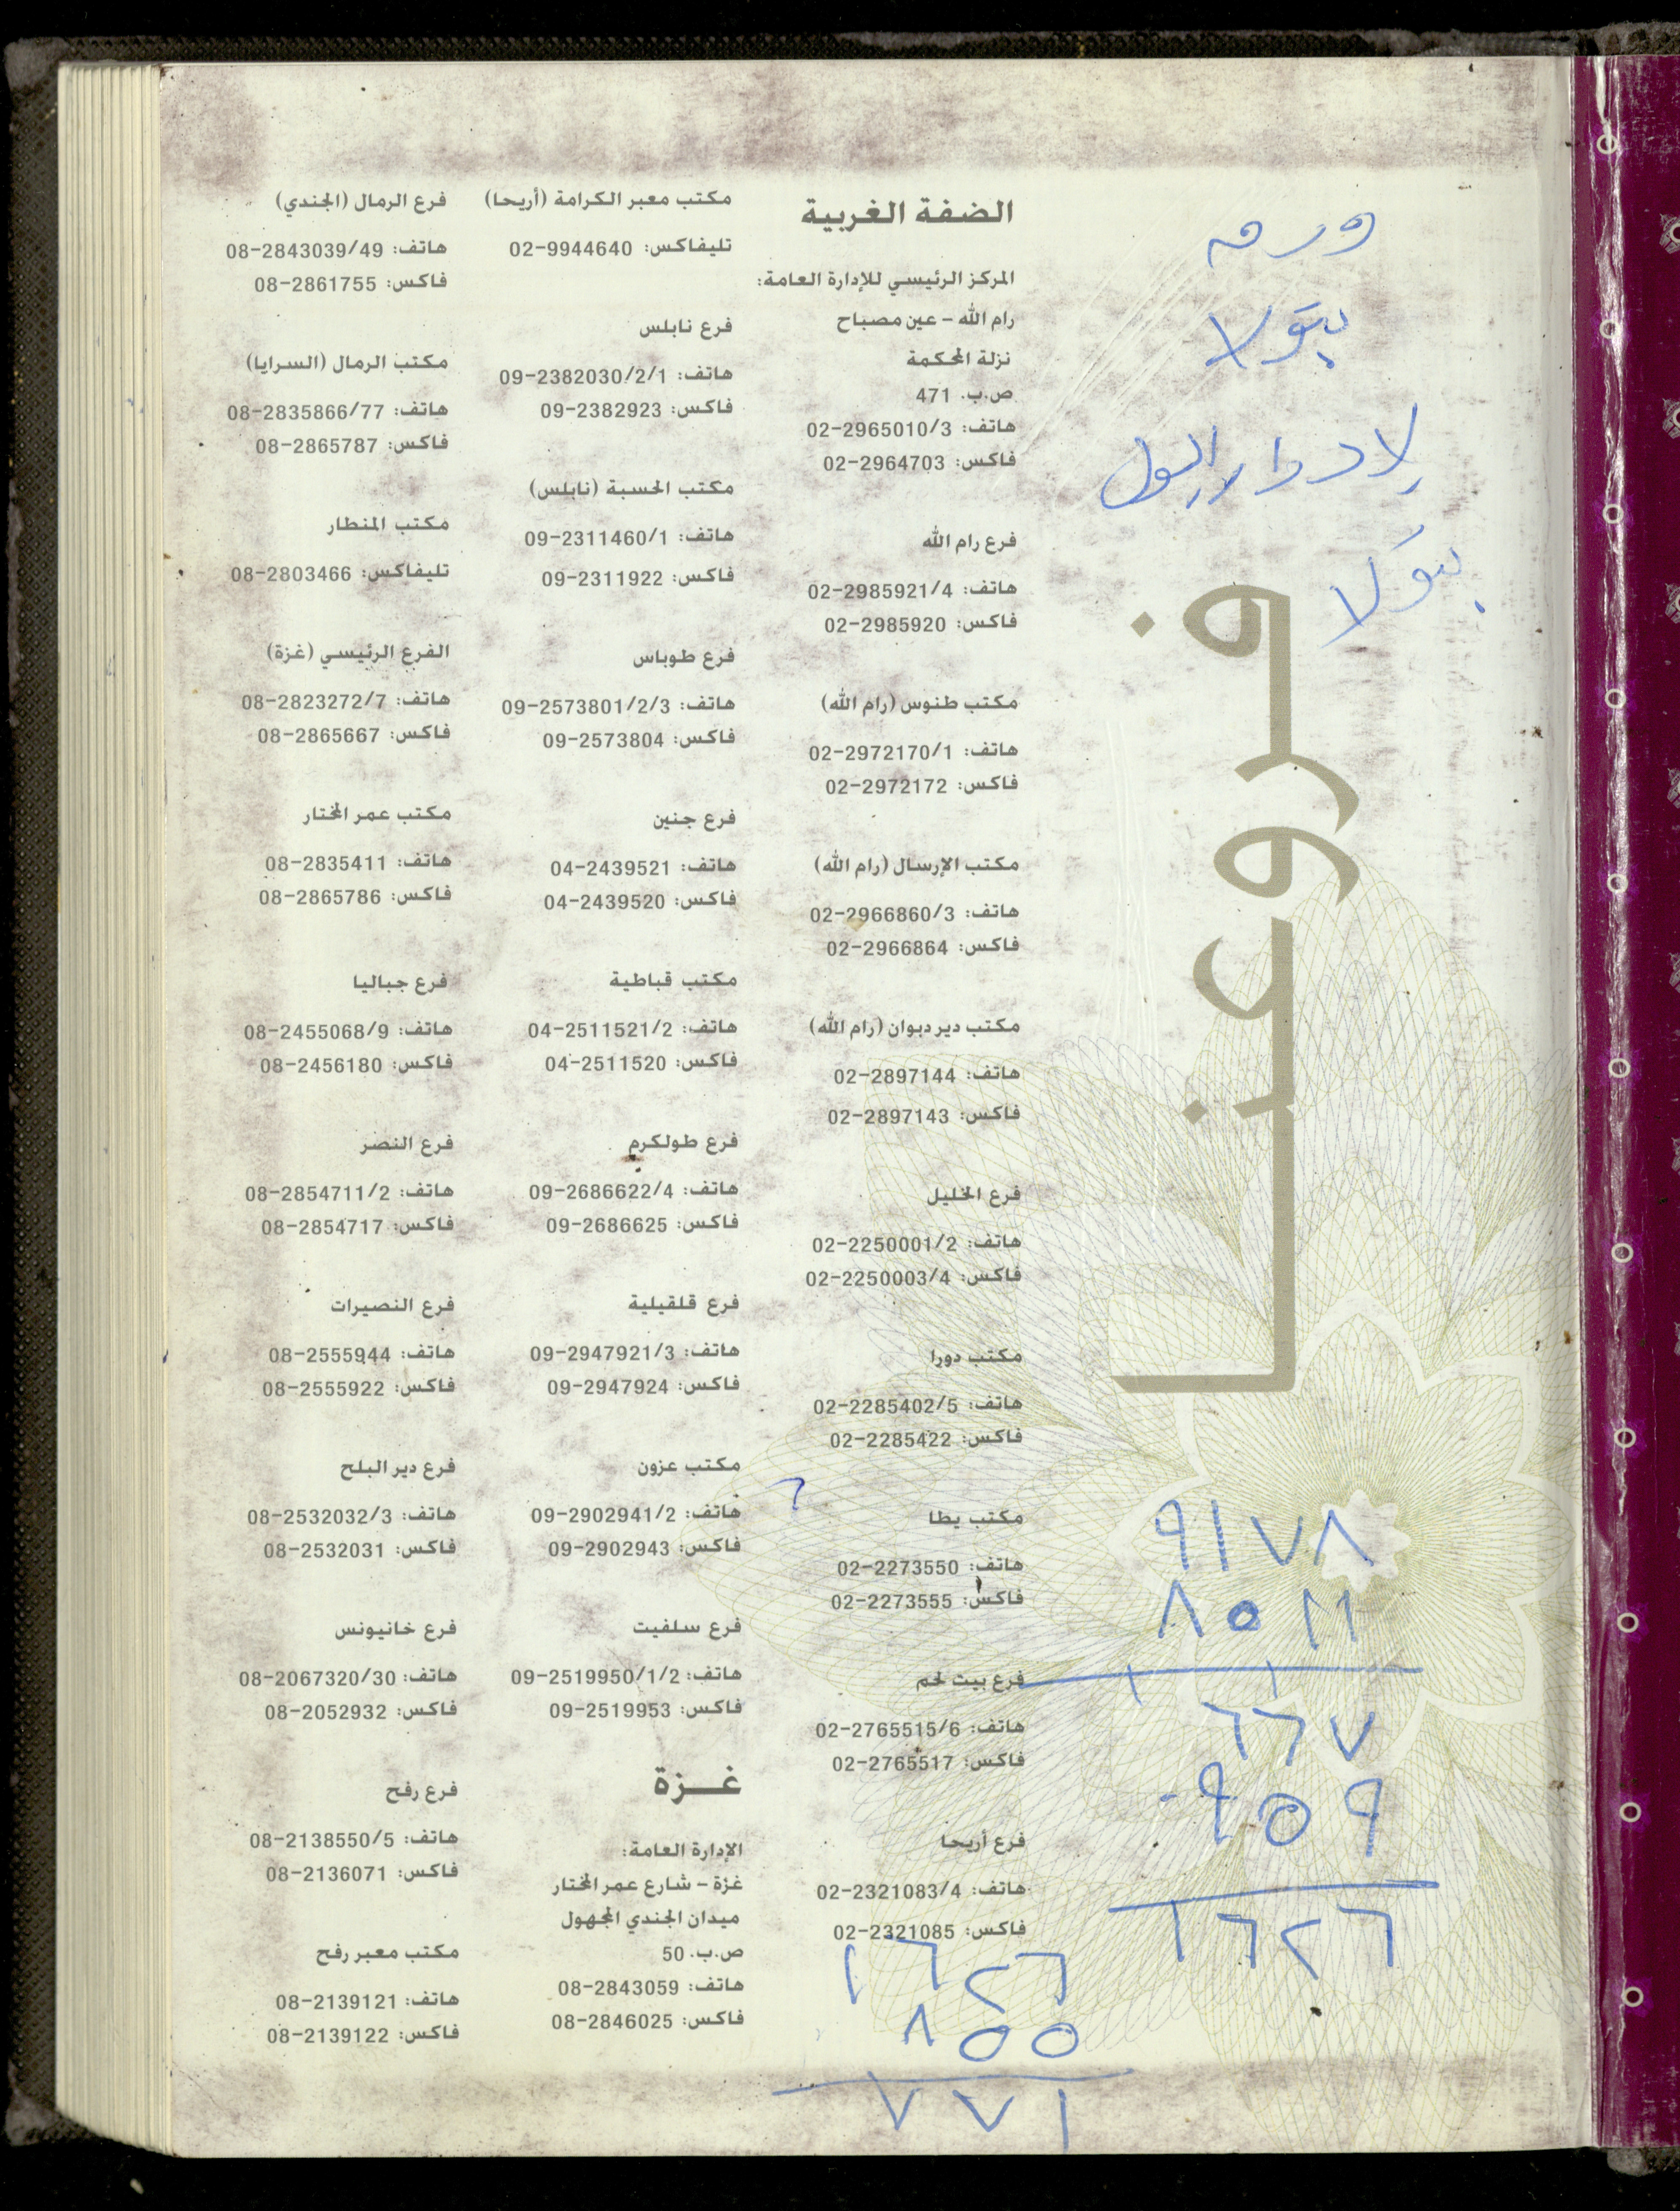 فروعنا
الضفة الغربية
المركز الرئيسي للإدارة العامة:
رام الله - عين مصباح
نزلة المحكمة
ص.ب. 471
هاتف: 02-2965010/3
فاكس: 02-2964703
فرع رام الله
هاتف: 02-2985921/4
فاكس: 02-2985920
مكتب طنوس (رام الله)
هاتف: 02-2972170/1
فاكس: 02-2972172
مكتب الإرسال (رام الله)
هاتف: 02-2966860/3
فاكس: 02-2966864
مكتب دير دبوان (رام الله)
هاتف: 02-2897144
فاكس: 02-2897143
فرع الخليل
هاتف: 02-2250001/2
فاكس: 02-2250003/4
مكتب دورا
هاتف: 02-2285402/5
فاكس: 02-2285422
مكتب يطا
هاتف: 02-2273550
فاكس: 02-2273555
فرع بيت لحم
هاتف: 02-2765515/6
فاكس: 02-2765517
فرع أريحا
هاتف: 02-2321083/4
فاكس: 02-2321085
مكتب معبر الكرامة (أريحا)
تليفاكس: 02-9944640
فرع نابلس
هاتف: 09-2382030/2/1
فاكس: 09-2382923
مكتب الحسبة (نابلس)
هاتف: 09-2311460/1
فاكس: 09-2311922
فرع طوباس
هاتف: 09-2573801/2/3
فاكس: 09-2573804
فرع جنين
هاتف: 04-2439521
فاكس: 04-2439520
مكتب قباطية
هاتف: 04-2511521/2
فاكس: 04-2511520
فرع طولكرم
هاتف: 09-2686622/4
فاكس: 09-2686625
فرع قلقيلية
هاتف: 09-2947921/3
فاكس: 09-2947924
مكتب عزون
هاتف: 09-2902941/2
فاكس: 09-2902943
فرع سلفيت
هاتف: 09-2519950/1/2
فاكس: 09-2519953
غـــزة
الإدارة العامة:
غزة - شارع عمر المختار
ميدان الجندي المجهول
ص.ب. 50
هاتف: 08-2843059
فاكس: 08-2846025
فرع الرمال (الجندي)
هاتف: 08-2843039/49
فاكس: 08-2861755
مكتب الرمال (السرايا)
هاتف: 08-2835866/77
فاكس: 08-2865787
مكتب المنطار
تليفاكس: 08-2803466
الفرع الرئيسي (غزة)
هاتف: 08-2823272/7
فاكس: 08-2865667
مكتب عمر المختار
هاتف: 08-2835411
فاكس: 08-2865786
فرع جباليا
هاتف: 08-2455068/9
فاكس: 08-2456180
فرع النصر
هاتف: 08-2854711/2
فاكس: 08-2854717
فرع النصيرات
هاتف: 08-2555944
فاكس: 08-2555922
فرع دير البلح
هاتف: 08-2532032/3
فاكس: 08-2532031
فرع خانيونس
هاتف: 08-2067320/30
فاكس: 08-2052932
فرع رفح
هاتف: 08-2138550/5
فاكس: 08-2136071
مكتب معبر رفح
هاتف: 08-2139121
فاكس: 08-2139122
٩١٧٨
٨٥١١
٦٦٧
٩٥٩
١٦٢٦
١٦٢٦
٨٥٥
٧٧١